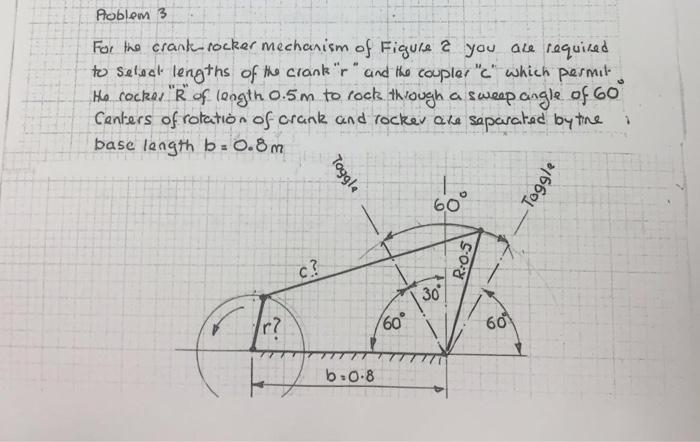 Problem 3
For the crank-rocker mechanism of Figure 2 you are required
to select lengths of the crank "r" and the coupler "c" which permit
the rocker "R" of length 0.5m to rock through a sweep angle of 60°
Centers of rotation of crank and rocker are separated by the
base length b = 0.8m
Toggle
60°
Toggle
c?
R=0.5
30°
r?
60°
60°
b=0.8